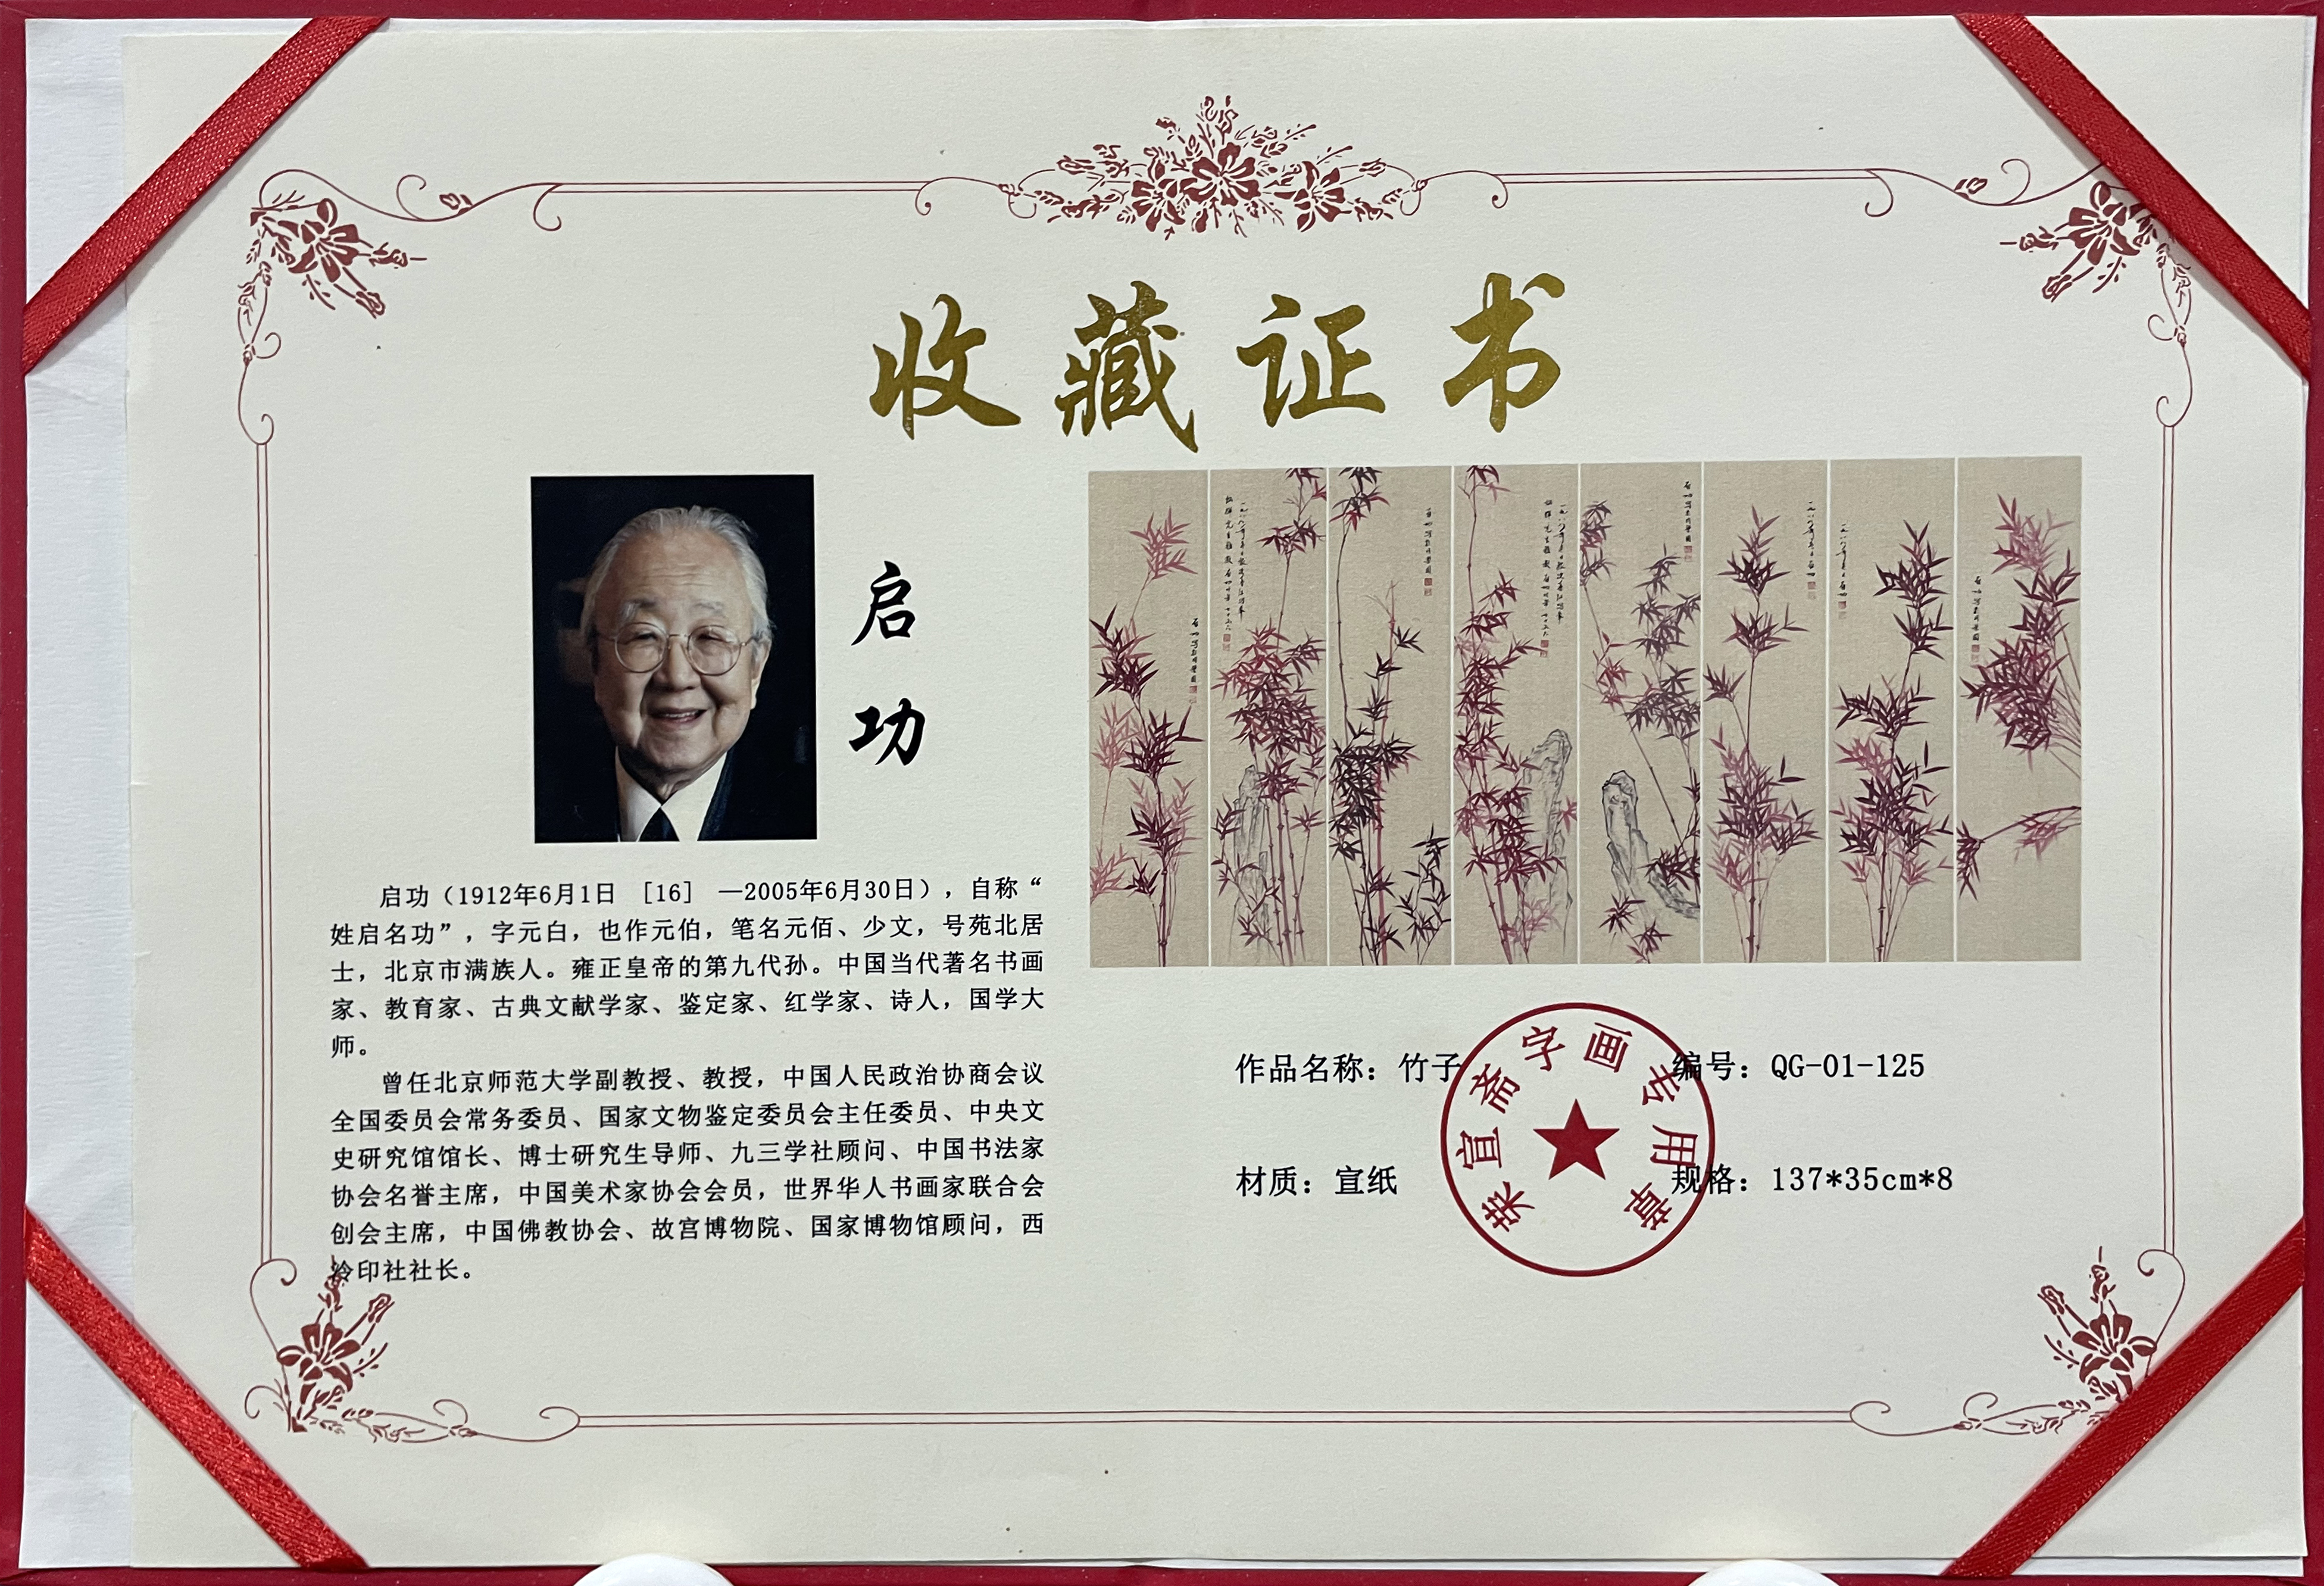 收藏证书
启功
启功（1912年6月1日 [16] —2005年6月30日），自称“
姓启名功”，字元白，也作元伯，笔名元佰、少文，号苑北居
士，北京市满族人。雍正皇帝的第九代孙。中国当代著名书画
家、教育家、古典文献学家、鉴定家、红学家、诗人，国学大
师。
曾任北京师范大学副教授、教授，中国人民政治协商会议
全国委员会常务委员、国家文物鉴定委员会主任委员、中央文
史研究馆馆长、博士研究生导师、九三学社顾问、中国书法家
协会名誉主席，中国美术家协会会员，世界华人书画家联合会
创会主席，中国佛教协会、故宫博物院、国家博物馆顾问，西
泠印社社长。
作品名称：竹子
编号：QG-01-125
材质：宣纸
规格：137*35cm*8
荣宣斋字画专用章